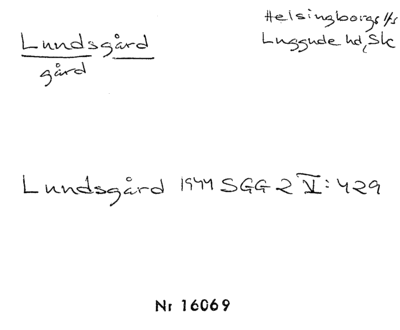 Lundsgård
gård
Helsingborgs lfs
Luggude hd, Sk
Lundsgård 1944 SGG 2 V: 429
Nr 16069